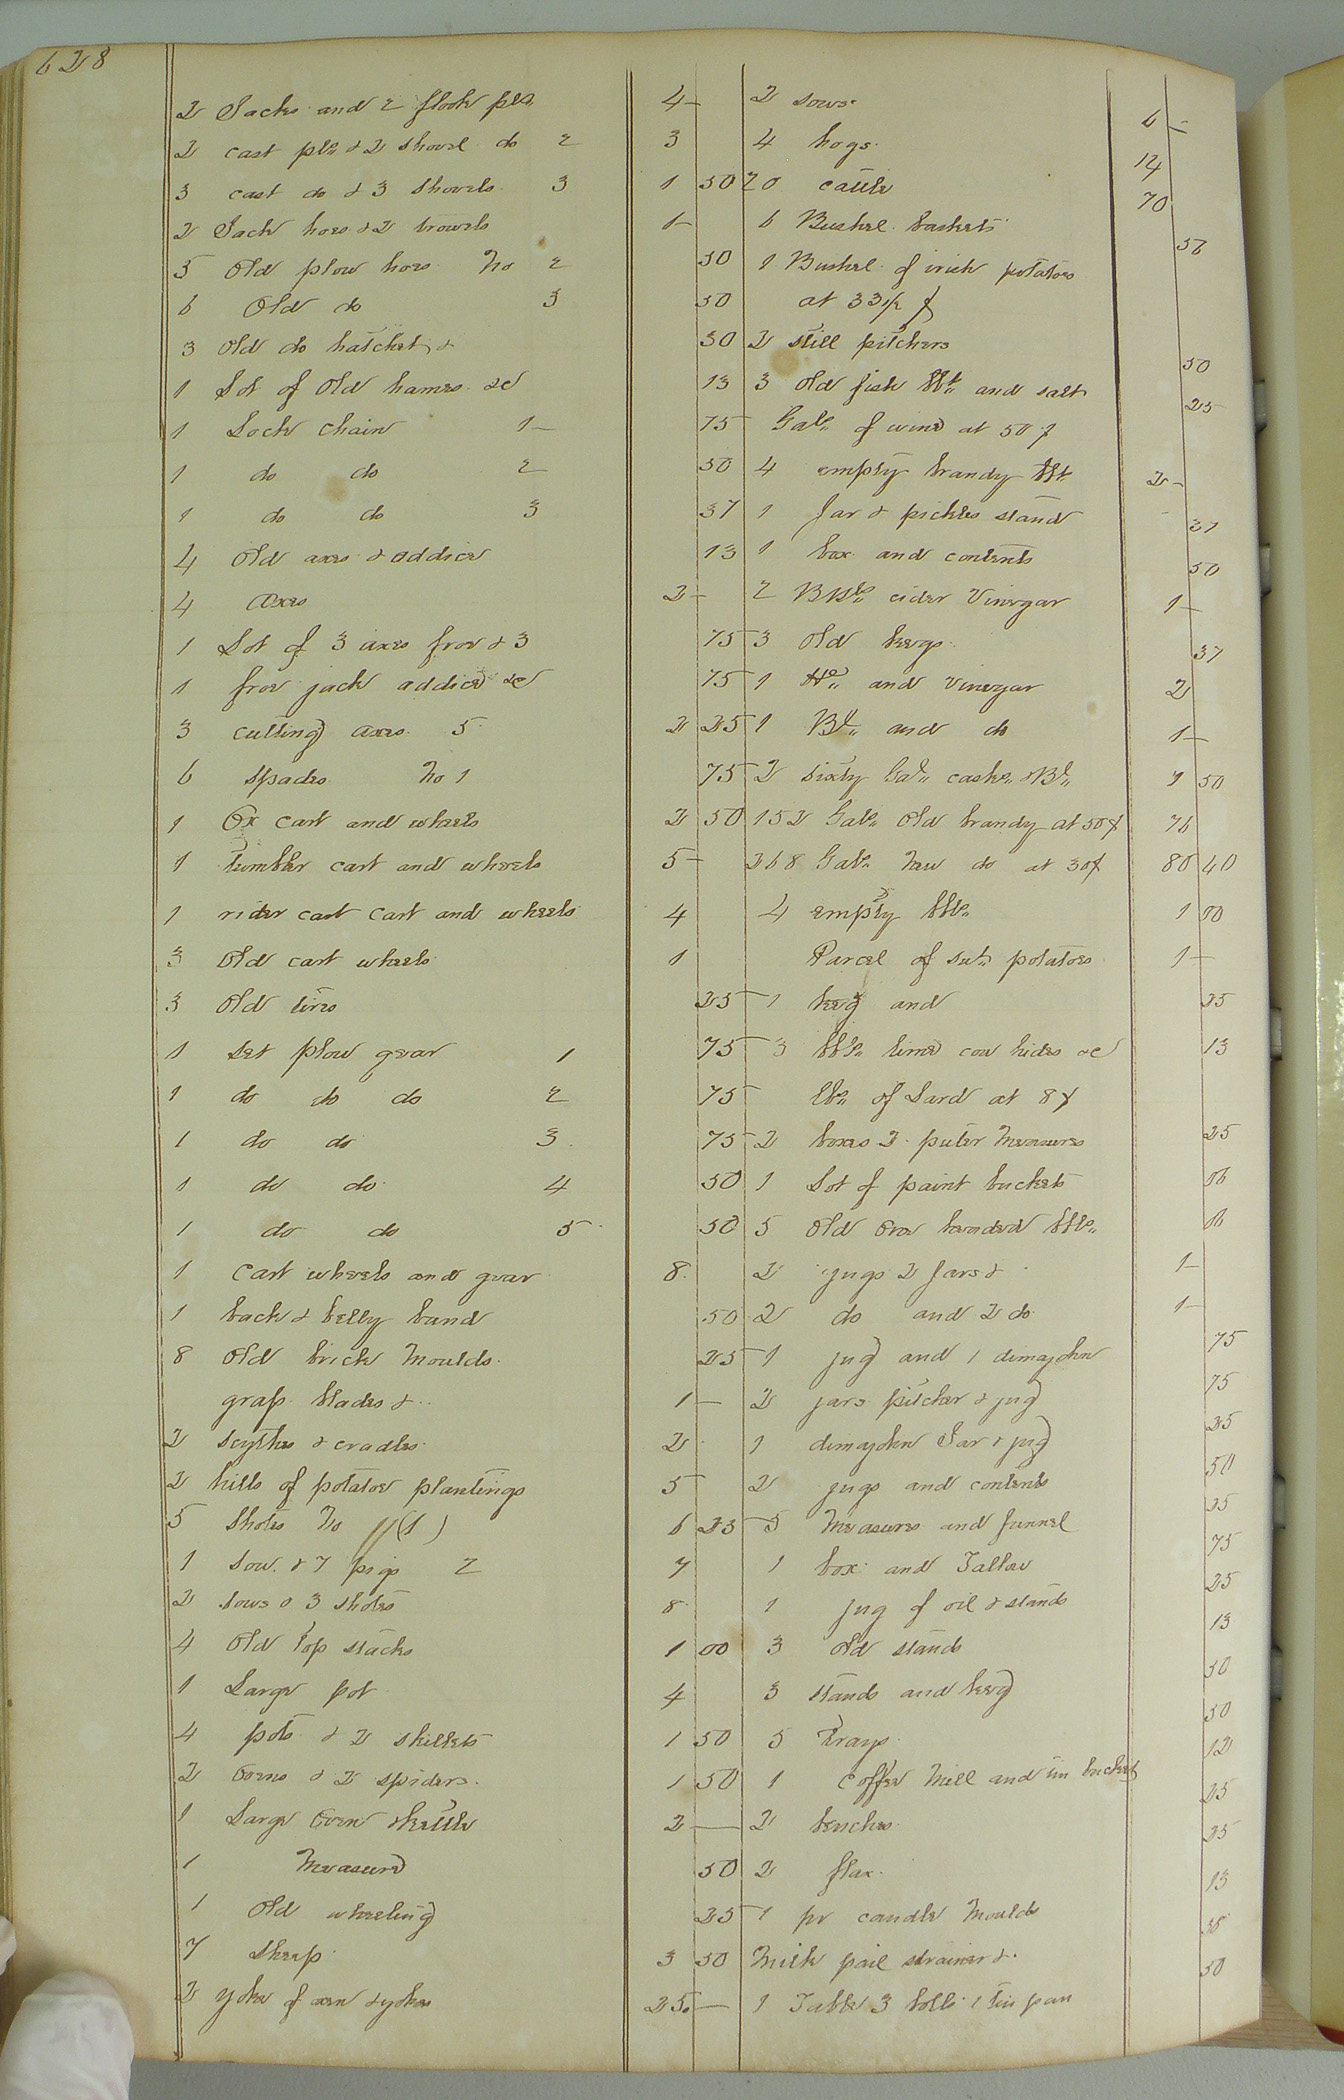 628
2 Sacks and 2 flook pls. 4 -
2 cast pls. & 2 shovel do 2 3
3 cast do & 3 Shovels 3 1 50
2 Sack hoes & 2 trowels 1 -
5 Old plow hoes No 2 50
6 Old do 3 50
3 Old do hatchet, & 50
1 Lot of Old hames &c 13
1 Lock Chain 1 - 75
1 do do 2 50
1 do do 3 37
4 Old axes & addice 13
4 Axes 2 -
1 Lot of 3 axes frow & 3 75
1 frow jack addice &c 75
3 cutting axes 5 2 25
6 Spades No 1 75
1 Ox Cart and wheels 2 50
1 tumbler cart and wheels 5 -
1 rider cart Cart and wheels 4
3 Old cart wheels 1
3 Old tires 25
1 Set plow gear 1 75
1 do do do 2 75
1 do do 3 75
1 do do 4 50
1 do do 5 50
1 Cart wheels and gear 8
1 back & belly band 50
8 Old brick Moulds 25
grass blades & 1 -
2 scythes & cradles 2
2 hills of potatoe plantings 5
5 Shotes No (1) 6 25
1 Sow & 7 pigs 2 7
2 sows & 3 shotes 8
4 Old top stacks 1 00
1 Large pot 4
4 pots & 2 skillets 1 50
2 Ovens & 2 spiders 1 50
1 Large Oven & kettle 2 -
1 Measure 50
1 Old wheeling 25
7 Sheep 3 50
2 yoke of oxen & yokes 25 -
2 sows 6 -
4 hogs 14
20 cattle 70
6 Bushel baskets 56
1 Bushel of irish potatoes
at 33 1/2 ¢
2 still pitchers 50
3 Old fish bbls. and salt 25
Gals. of wine at 50 ¢
4 empty brandy bbls. 2 -
1 Jar & pickles stand 37
1 box and contents 50
2 BBls. cider Vinegar 1 -
3 Old kegs 37
1 Hd. and vinegar 2
1 Bl. and do 1 -
2 sixty Gal. casks & Bl. 1 50
152 Gals. Old brandy at 50¢ 76
268 Gals. New do at 30¢ 80 40
4 empty bbls. 1 00
Parcel of Swt. potatoes 1 -
1 keg and 25
3 bbls. lime cow hides &c 13
lbs. of Lard at 8 ¢
2 boxes 2 puter Measures 25
1 Lot of paint buckets 06
5 Old One headed bbls. 06
2 jugs 2 Jars & 1 -
2 do and 2 do 1 -
1 jug and 1 demajohn 75
2 jars pitcher & jug 75
1 demajohn Jar & jug 25
2 jugs and contents 50
5 Measures and funnel 25
1 box and Tallow 75
1 jug of oil & stands 25
3 Old stands 13
3 stands and keg 50
5 Trays 50
1 Coffee Mill and tin bucket 12
2 benches 25
2 flax 25
1 pr candle Moulds 13
Milk pail strainer & 38
1 Table 3 bolls 1 tin pan 50